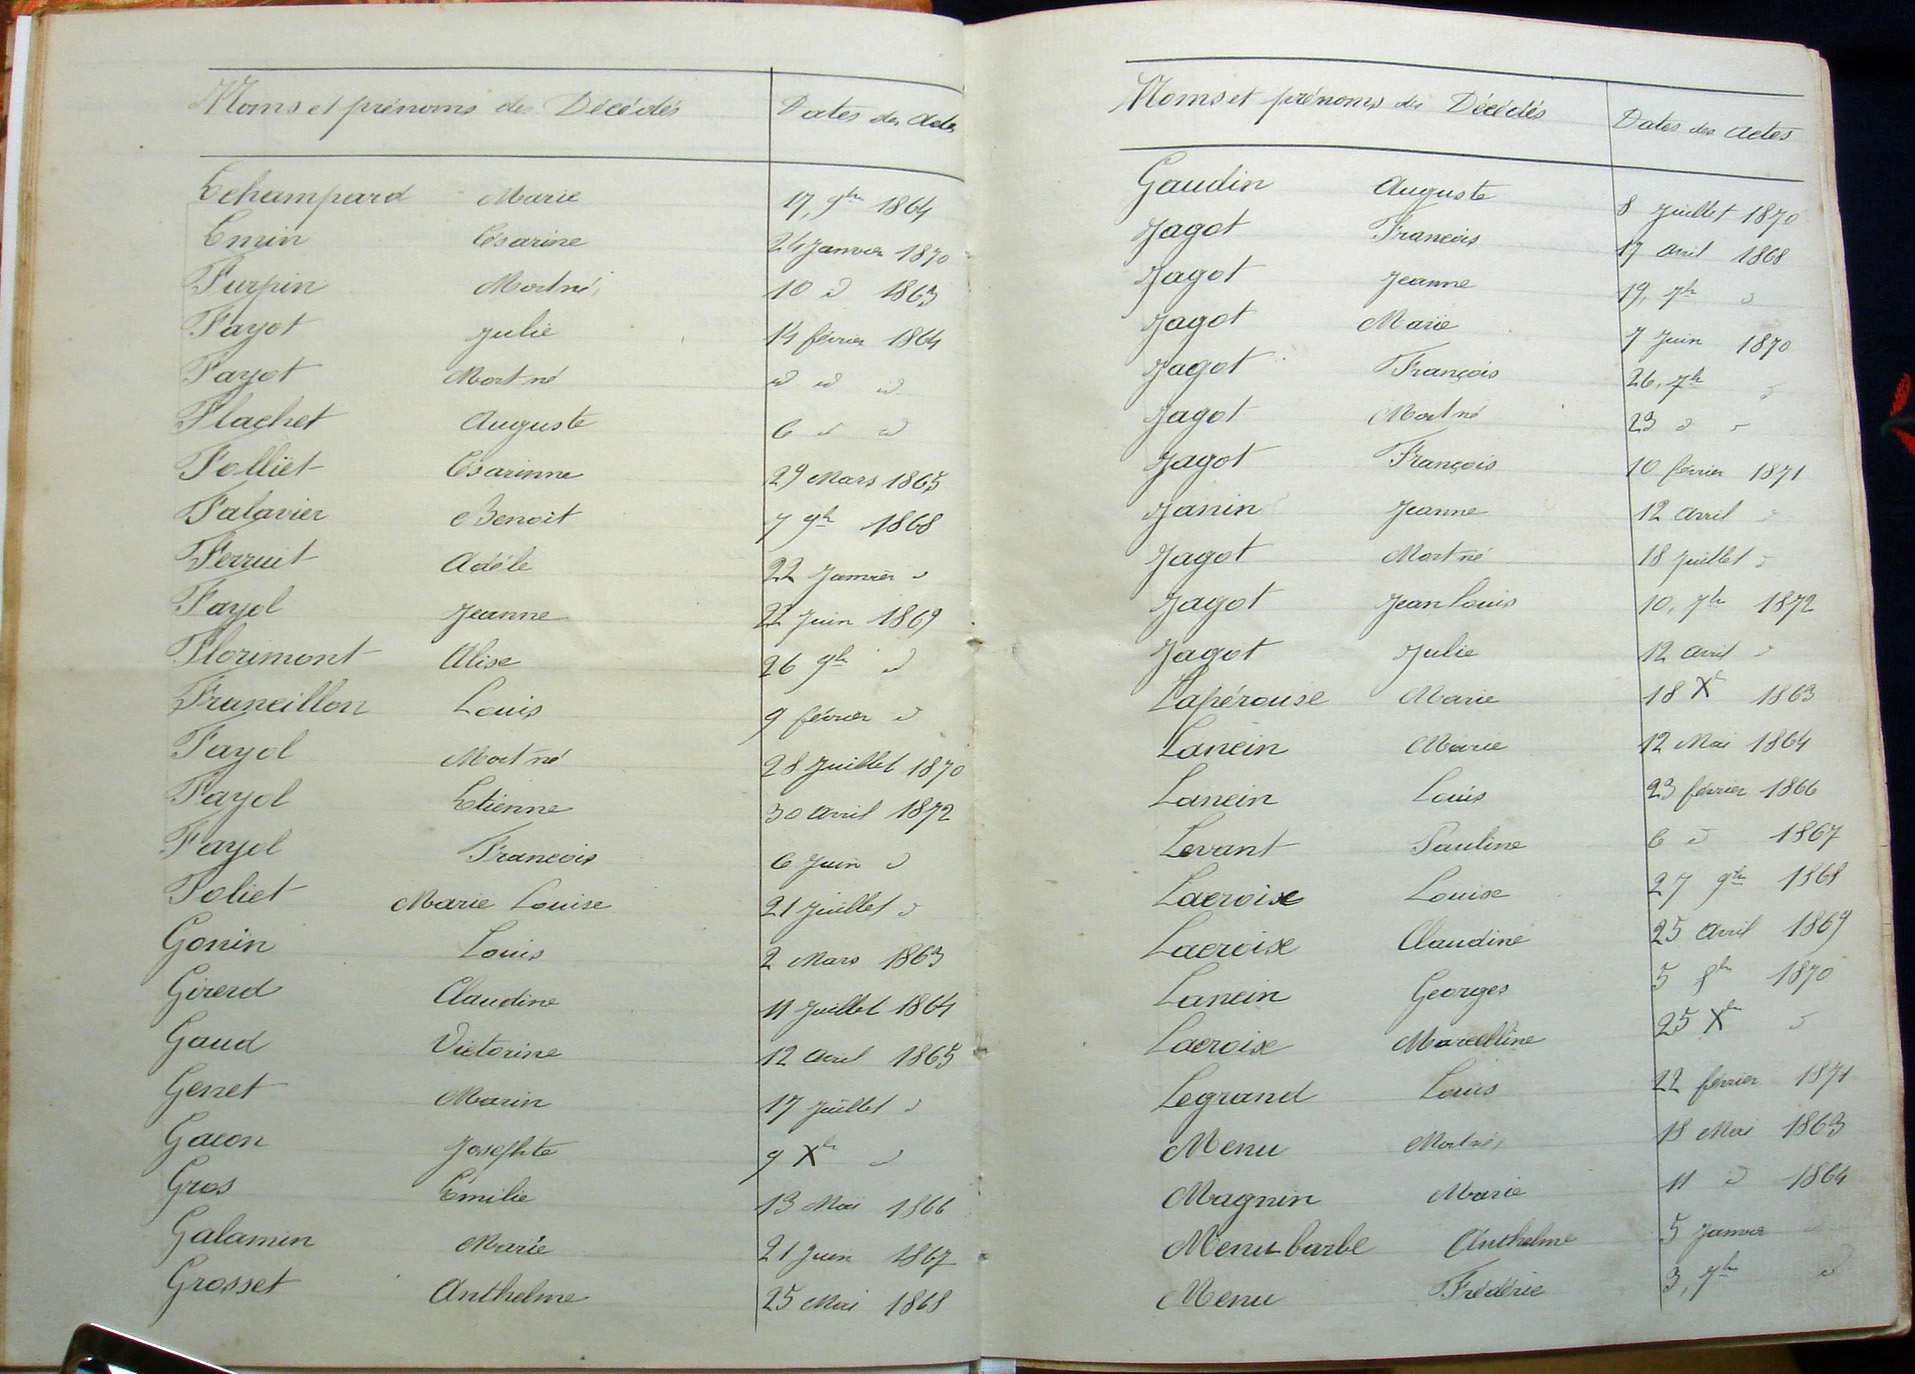 Noms et prénoms des Décédés Dates des Actes
Echampard Marie 17, 9bre 1864
Emin Césarine 24 Janvier 1870
Furpin Mort né 10 d 1863
Fayot Julie 14 février 1864
Fayot Mort né d d d
Flachet Auguste 6 d d
Folliet Césarinne 29 Mars 1865
Falavier Benoit 7 9bre 1868
Ferruit Adéle 22 Janvier d
Fayol Jeanne 22 Juin 1869
Florimont Alise 26 9bre d
Francillon Louis 9 février d
Fayol Mort né 28 Juillet 1870
Fayol Etienne 30 Avril 1872
Fayol Francois 6 Juin d
Foliet Marie Louise 21 Juillet d
Gonin Louis 2 Mars 1863
Girerd Claudine 11 Juillet 1864
Gaud Victorine 12 Avril 1865
Genet Marin 17 Juillet d
Gacon Josephte 9 Xbre d
Gros Emilie 13 Mai 1866
Galamin Marie 21 Juin 1867
Grosset Anthelme 25 Mai 1868
Noms et prénoms des Décédés Dates des Actes
Gaudin Auguste 8 Juillet 1870
Jagot Francois 17 Avril 1868
Jagot Jeanne 19, 7bre d
Jagot Marie 7 Juin 1870
Jagot François 26, 7bre d
Jagot Mort né 23 d d
Jagot François 10 février 1871
Janin Jeanne 12 Avril d
Jagot Mort né 18 Juillet d
Jagot Jean Louis 10, 7bre 1872
Jagot Julie 12 Avril d
Lapérouse Marie 18 Xbre 1863
Lancin Marie 12 Mai 1864
Lancin Louis 23 février 1866
Levant Pauline 6 d 1867
Lacroix Louise 27 9bre 1868
Lacroix Claudine 25 Avril 1869
Lancin Georges 5 8bre 1870
Lacroix Marcelline 25 Xbre d
Legrand Louis 22 février 1871
Menu Mort né 18 Mai 1863
Magnin Marie 11 d 1864
Menu barbe Anthelme 5 Janvier d
Menu Frédéric 3, 7bre d